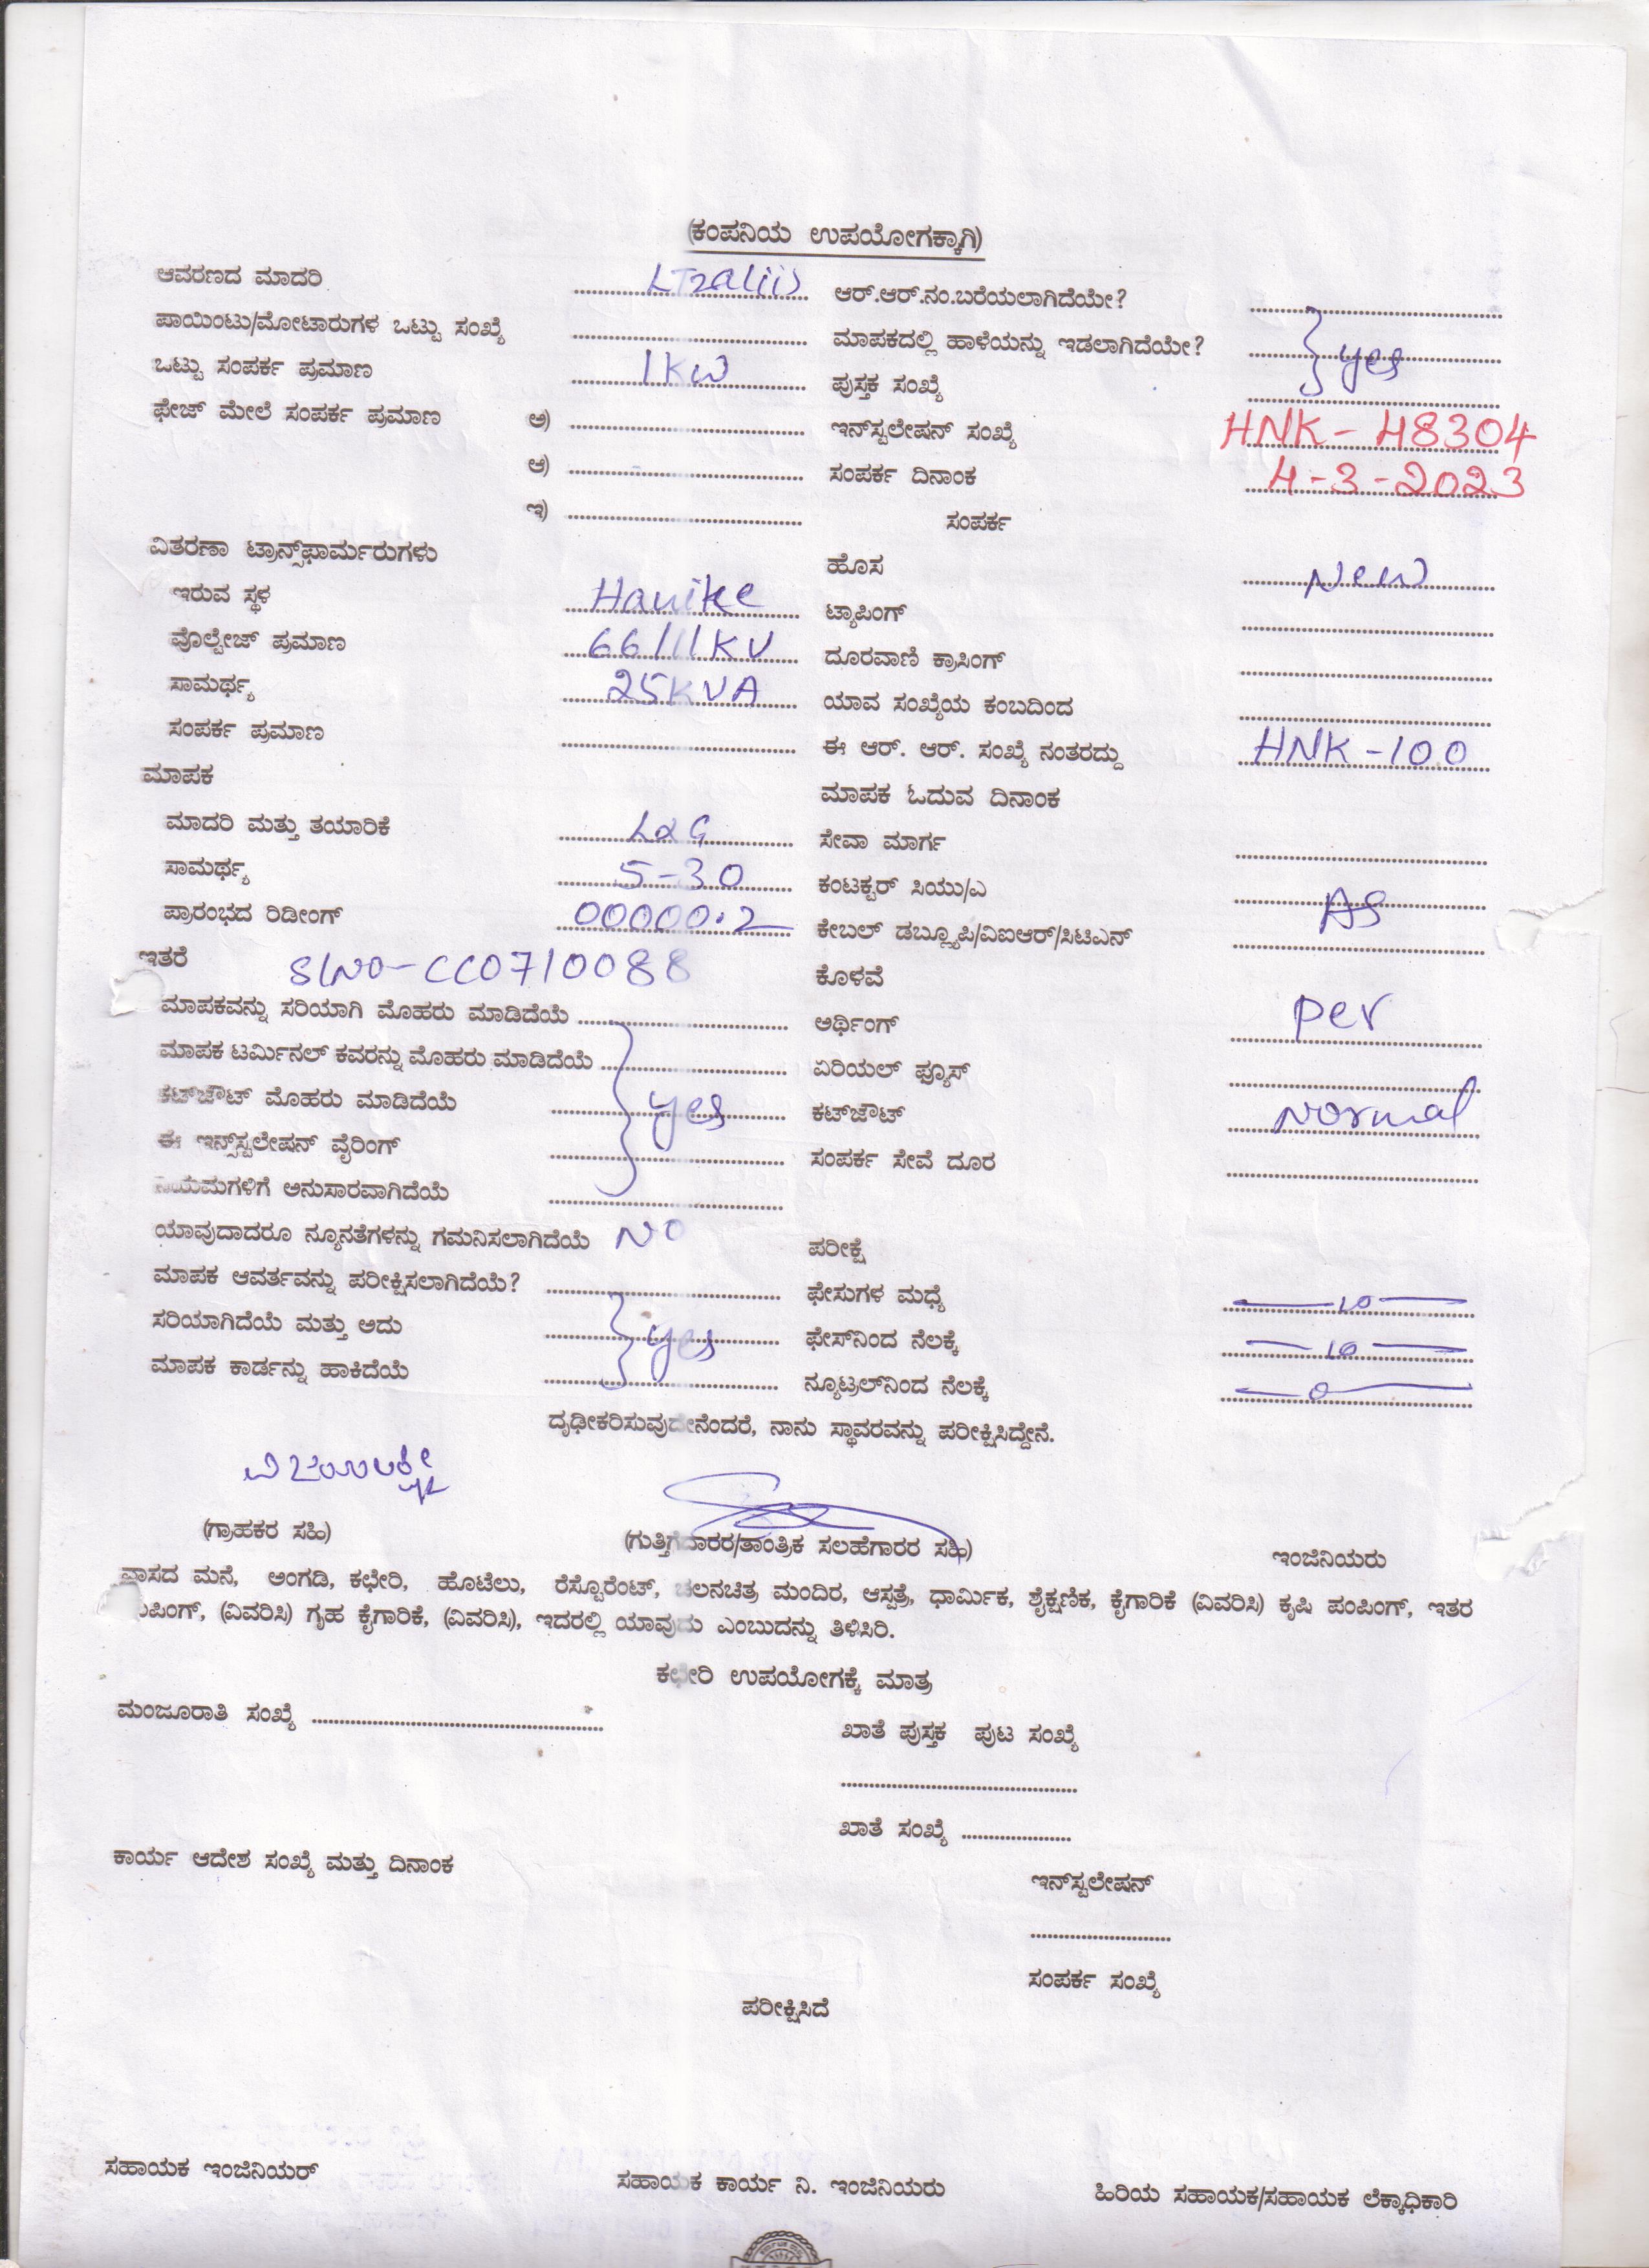 (ಕಂಪನಿಯ ಉಪಯೋಗಕ್ಕಾಗಿ)
ಆವರಣದ ಮಾದರಿ LT2a(ii) ಆರ್.ಆರ್.ನಂ.ಬರೆಯಲಾಗಿದೆಯೇ?
ಪಾಯಿಂಟು/ಮೋಟಾರುಗಳ ಒಟ್ಟು ಸಂಖ್ಯೆ ಮಾಪಕದಲ್ಲಿ ಹಾಳೆಯನ್ನು ಇಡಲಾಗಿದೆಯೇ? } yes
ಒಟ್ಟು ಸಂಪರ್ಕ ಪ್ರಮಾಣ 1KW ಪುಸ್ತಕ ಸಂಖ್ಯೆ
ಫೇಜ್ ಮೇಲೆ ಸಂಪರ್ಕ ಪ್ರಮಾಣ ಅ) ಇನ್‌ಸ್ಟಲೇಷನ್ ಸಂಖ್ಯೆ HNK-48304
ಆ) ಸಂಪರ್ಕ ದಿನಾಂಕ 4-3-2023
ಇ) ಸಂಪರ್ಕ
ವಿತರಣಾ ಟ್ರಾನ್ಸ್‌ಫಾರ್ಮರುಗಳು ಹೊಸ New
ಇರುವ ಸ್ಥಳ Hanike ಟ್ಯಾಪಿಂಗ್
ವೊಲ್ಟೇಜ್ ಪ್ರಮಾಣ 66/11KV ದೂರವಾಣಿ ಕ್ರಾಸಿಂಗ್
ಸಾಮರ್ಥ್ಯ 25KVA ಯಾವ ಸಂಖ್ಯೆಯ ಕಂಬದಿಂದ
ಸಂಪರ್ಕ ಪ್ರಮಾಣ ಈ ಆರ್. ಆರ್. ಸಂಖ್ಯೆ ನಂತರದ್ದು HNK-100
ಮಾಪಕ ಮಾಪಕ ಓದುವ ದಿನಾಂಕ
ಮಾದರಿ ಮತ್ತು ತಯಾರಿಕೆ L&G ಸೇವಾ ಮಾರ್ಗ
ಸಾಮರ್ಥ್ಯ 5-30 ಕಂಟಕ್ಟರ್ ಸಿಯು/ಎ AS
ಪ್ರಾರಂಭದ ರಿಡೀಂಗ್ 00000.2 ಕೇಬಲ್ ಡಬ್ಲ್ಯೂಪಿ/ವಿಐಆರ್/ಸಿಟಿಎನ್
ಇತರೆ SlNo-CC0710088 ಕೊಳವೆ
ಮಾಪಕವನ್ನು ಸರಿಯಾಗಿ ಮೊಹರು ಮಾಡಿದೆಯೆ ಅರ್ಥಿಂಗ್ per
ಮಾಪಕ ಟರ್ಮಿನಲ್ ಕವರನ್ನು ಮೊಹರು ಮಾಡಿದೆಯೆ ಏರಿಯಲ್ ಫ್ಯೂಸ್
ಕಟ್‌ಔಟ್ ಮೊಹರು ಮಾಡಿದೆಯೆ } yes ಕಟ್‌ಔಟ್ Normal
ಈ ಇನ್ಸ್‌ಸ್ಟಲೇಷನ್ ವೈರಿಂಗ್ ಸಂಪರ್ಕ ಸೇವೆ ದೂರ
ನಿಯಮಗಳಿಗೆ ಅನುಸಾರವಾಗಿದೆಯೆ
ಯಾವುದಾದರೂ ನ್ಯೂನತೆಗಳನ್ನು ಗಮನಿಸಲಾಗಿದೆಯೆ NO ಪರೀಕ್ಷೆ
ಮಾಪಕ ಆವರ್ತವನ್ನು ಪರೀಕ್ಷಿಸಲಾಗಿದೆಯೆ? ಫೇಸುಗಳ ಮಧ್ಯೆ —10—
ಸರಿಯಾಗಿದೆಯೆ ಮತ್ತು ಅದು } yes ಫೇಸ್‌ನಿಂದ ನೆಲಕ್ಕೆ —10—
ಮಾಪಕ ಕಾರ್ಡನ್ನು ಹಾಕಿದೆಯೆ ನ್ಯೂಟ್ರಲ್‌ನಿಂದ ನೆಲಕ್ಕೆ —0—
ದೃಢೀಕರಿಸುವುದೇನೆಂದರೆ, ನಾನು ಸ್ಥಾವರವನ್ನು ಪರೀಕ್ಷಿಸಿದ್ದೇನೆ.
ವಿಜಯಲಕ್ಷ್ಮೀ
(ಗ್ರಾಹಕರ ಸಹಿ) (ಗುತ್ತಿಗೆದಾರರ/ತಾಂತ್ರಿಕ ಸಲಹೆಗಾರರ ಸಹಿ) ಇಂಜಿನಿಯರು
ವಾಸದ ಮನೆ, ಅಂಗಡಿ, ಕಛೇರಿ, ಹೊಟೆಲು, ರೆಸ್ಟೊರೆಂಟ್, ಚಲನಚಿತ್ರ ಮಂದಿರ, ಆಸ್ಪತ್ರೆ, ಧಾರ್ಮಿಕ, ಶೈಕ್ಷಣಿಕ, ಕೈಗಾರಿಕೆ (ವಿವರಿಸಿ) ಕೃಷಿ ಪಂಪಿಂಗ್, ಇತರ
ಪಂಪಿಂಗ್, (ವಿವರಿಸಿ) ಗೃಹ ಕೈಗಾರಿಕೆ, (ವಿವರಿಸಿ), ಇದರಲ್ಲಿ ಯಾವುದು ಎಂಬುದನ್ನು ತಿಳಿಸಿರಿ.
ಕಛೇರಿ ಉಪಯೋಗಕ್ಕೆ ಮಾತ್ರ
ಮಂಜೂರಾತಿ ಸಂಖ್ಯೆ ಖಾತೆ ಪುಸ್ತಕ ಪುಟ ಸಂಖ್ಯೆ
ಖಾತೆ ಸಂಖ್ಯೆ
ಕಾರ್ಯ ಆದೇಶ ಸಂಖ್ಯೆ ಮತ್ತು ದಿನಾಂಕ
ಇನ್‌ಸ್ಟಲೇಷನ್
ಸಂಪರ್ಕ ಸಂಖ್ಯೆ
ಪರೀಕ್ಷಿಸಿದೆ
ಸಹಾಯಕ ಇಂಜಿನಿಯರ್ ಸಹಾಯಕ ಕಾರ್ಯ ನಿ. ಇಂಜಿನಿಯರು ಹಿರಿಯ ಸಹಾಯಕ/ಸಹಾಯಕ ಲೆಕ್ಕಾಧಿಕಾರಿ